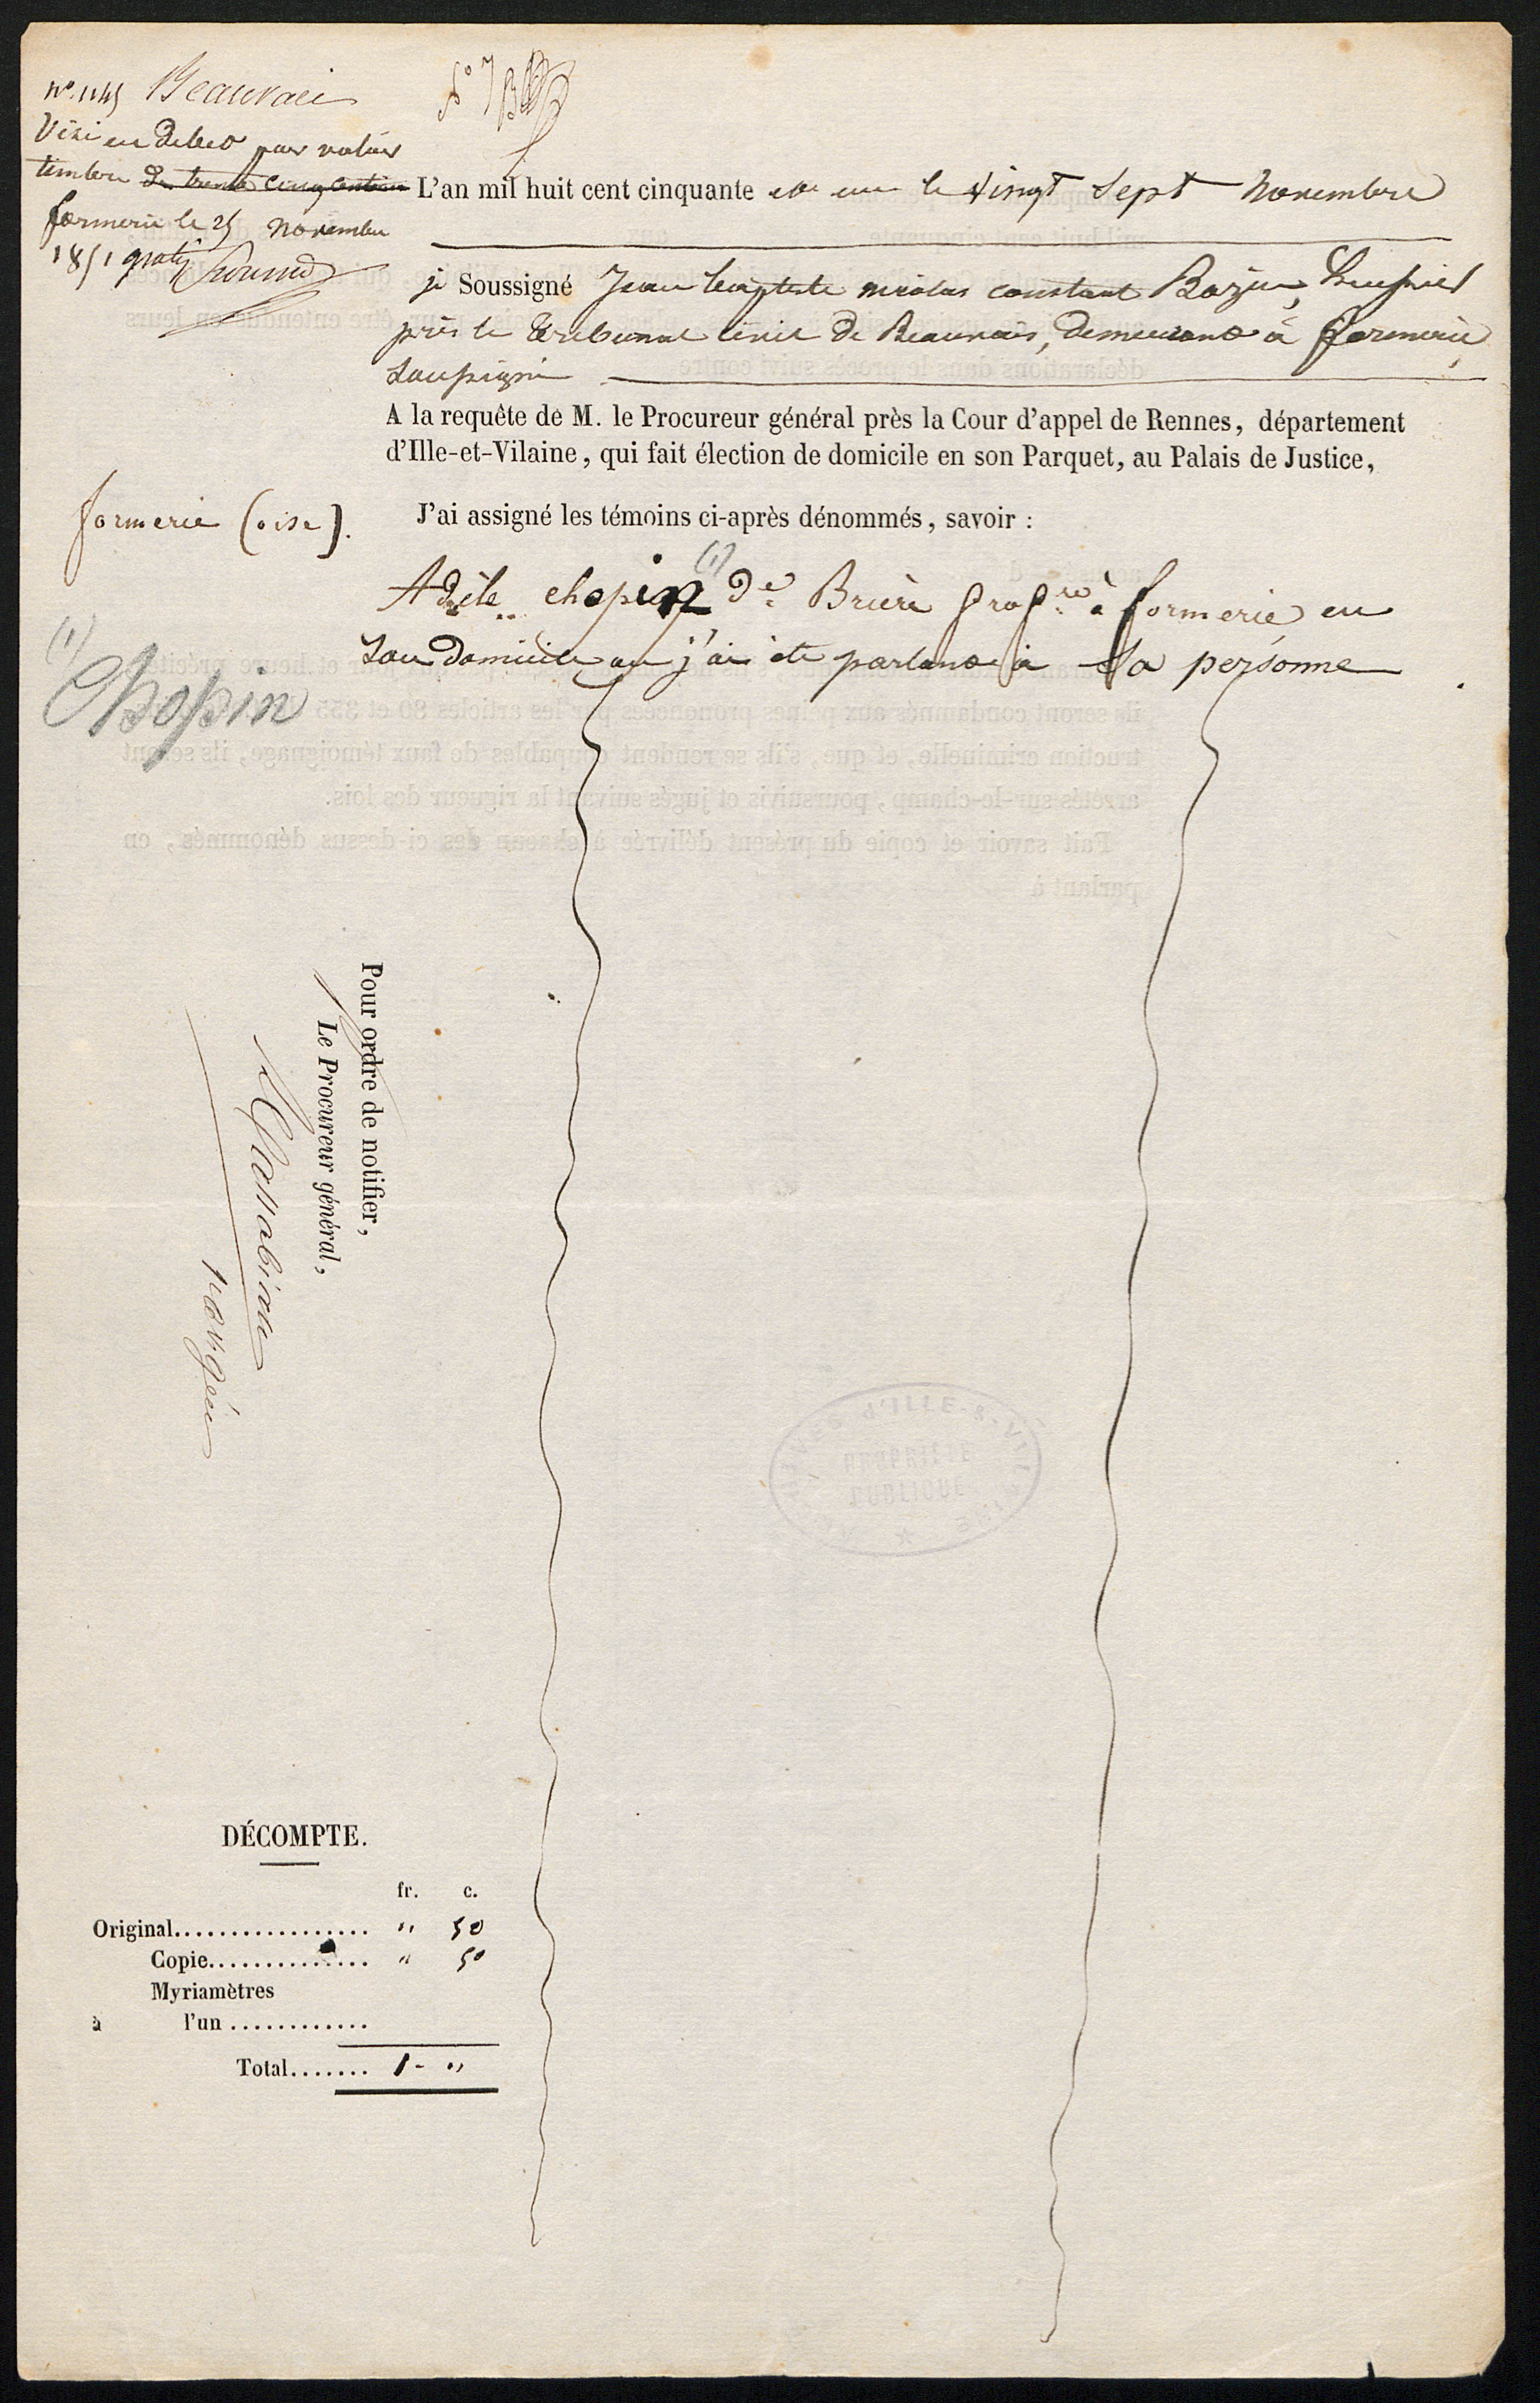 nº. 1145 Beauvais
Visé en debet pour valoir
timbre de trente cinq centimes
formerie le 25 novembre
1851 gratis
L'an mil huit cent cinquante et un le vingt sept novembre
je Soussigné Jean baptiste nicolas constant Bazin, huissier
près le tribunal civil de Beauvais, demeurant à formerie
soussigné
A la requête de M. le Procureur général près la Cour d'appel de Rennes, département
d'Ille-et-Vilaine, qui fait élection de domicile en son Parquet, au Palais de Justice,
formerie (oise).
J'ai assigné les témoins ci-après dénommés, savoir :
Adèle chopin (1) de Brière prop.re à formerie en
son domicile ou j'ai été parlant à sa personne
(1)
Chopin
Pour ordre de notifier,
Le Procureur général,
DÉCOMPTE.
fr. c.
Original.................. " 50
Copie............... " 50
Myriamètres
à l'un ............
Total....... 1 - "
D'ILLE-&-VILAINE
PROPRIÉTÉ
PUBLIQUE